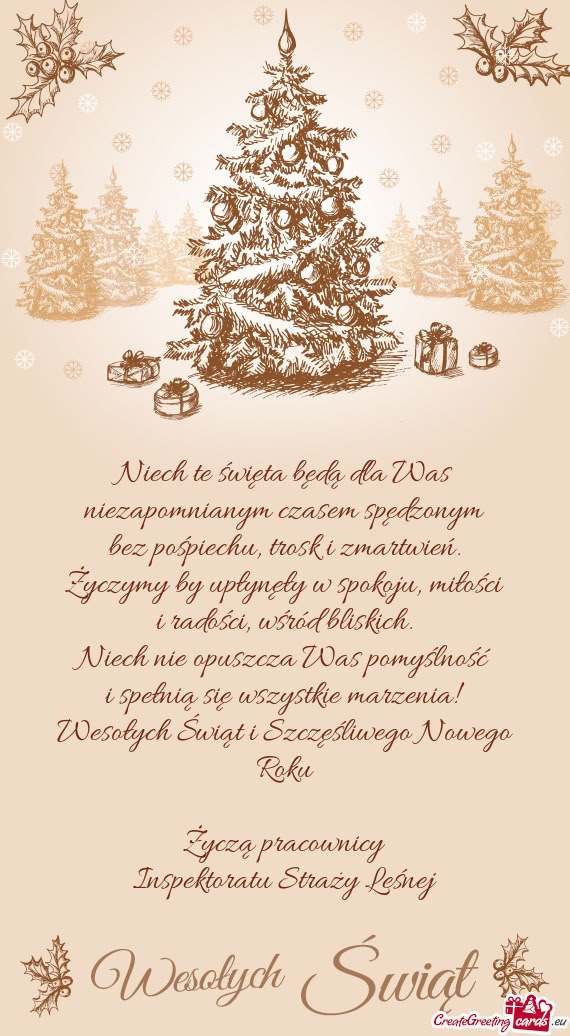 Niech te święta będą dla Was
niezapomnianym czasem spędzonym
bez pośpiechu, trosk i zmartwień.
Życzymy by upłynęły w spokoju, miłości
i radości, wśród bliskich.
Niech nie opuszcza Was pomyślność
i spełnią się wszystkie marzenia!
Wesołych Świąt i Szczęśliwego Nowego
Roku
Życzą pracownicy
Inspektoratu Straży Leśnej
Wesołych Świąt
CreateGreetingcards.eu